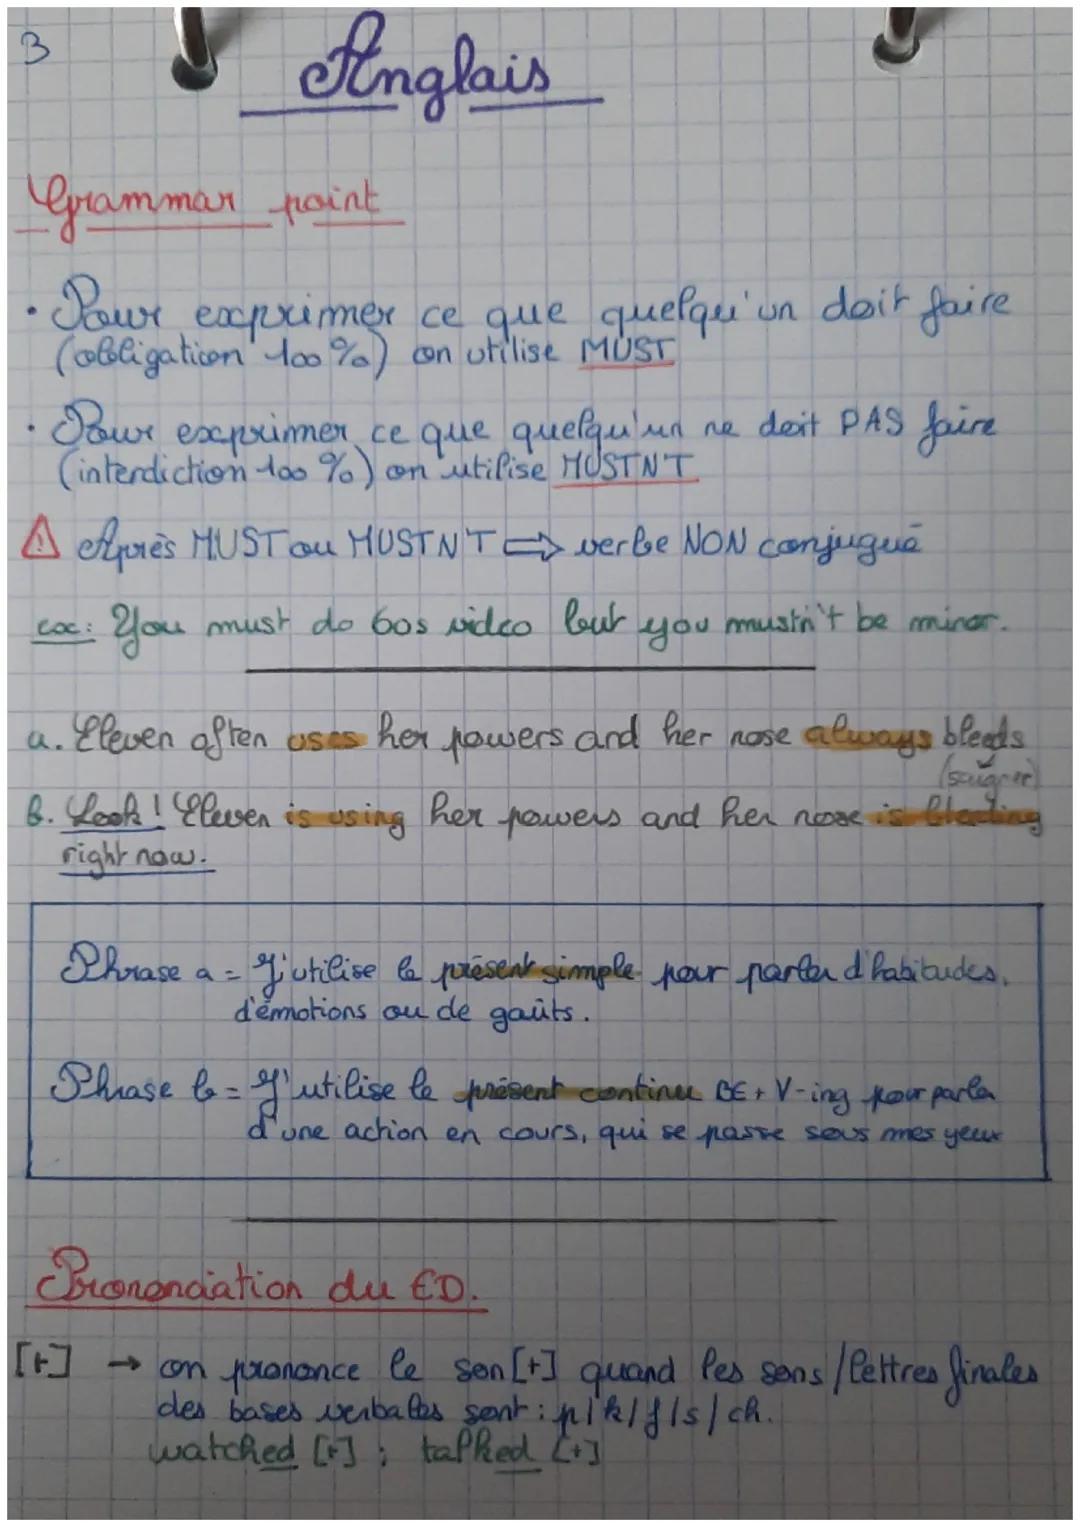 3
Anglais
Grammar point
• Pour exprimer ce que quelqu'un doit faire
(obligation 100 %) on utilise MUST
• Pour exprimer ce que quelqu'un ne doit PAS faire
(interdiction 100 %) on utilise MUSTN'T
⚠ Après MUST ou MUSTN'T ⇒ verbe NON conjugué
ex: You must do bos video but you mustn't be minor.
a. Eleven often uses her powers and her nose always bleeds
(saigner)
b. Look! Eleven is using her powers and her nose is bleeding
right now.
Phrase a = J'utilise le présent simple pour parler d'habitudes,
d'émotions ou de goûts.
Phrase b = J'utilise le présent continu BE + V-ing pour parler
d'une action en cours, qui se passe sous mes yeux
Prononciation du ED.
[t] → on prononce le son [t] quand les sons/lettres finales
des bases verbales sont : p/k/f/s/ch.
watched [t] ; talked [t]